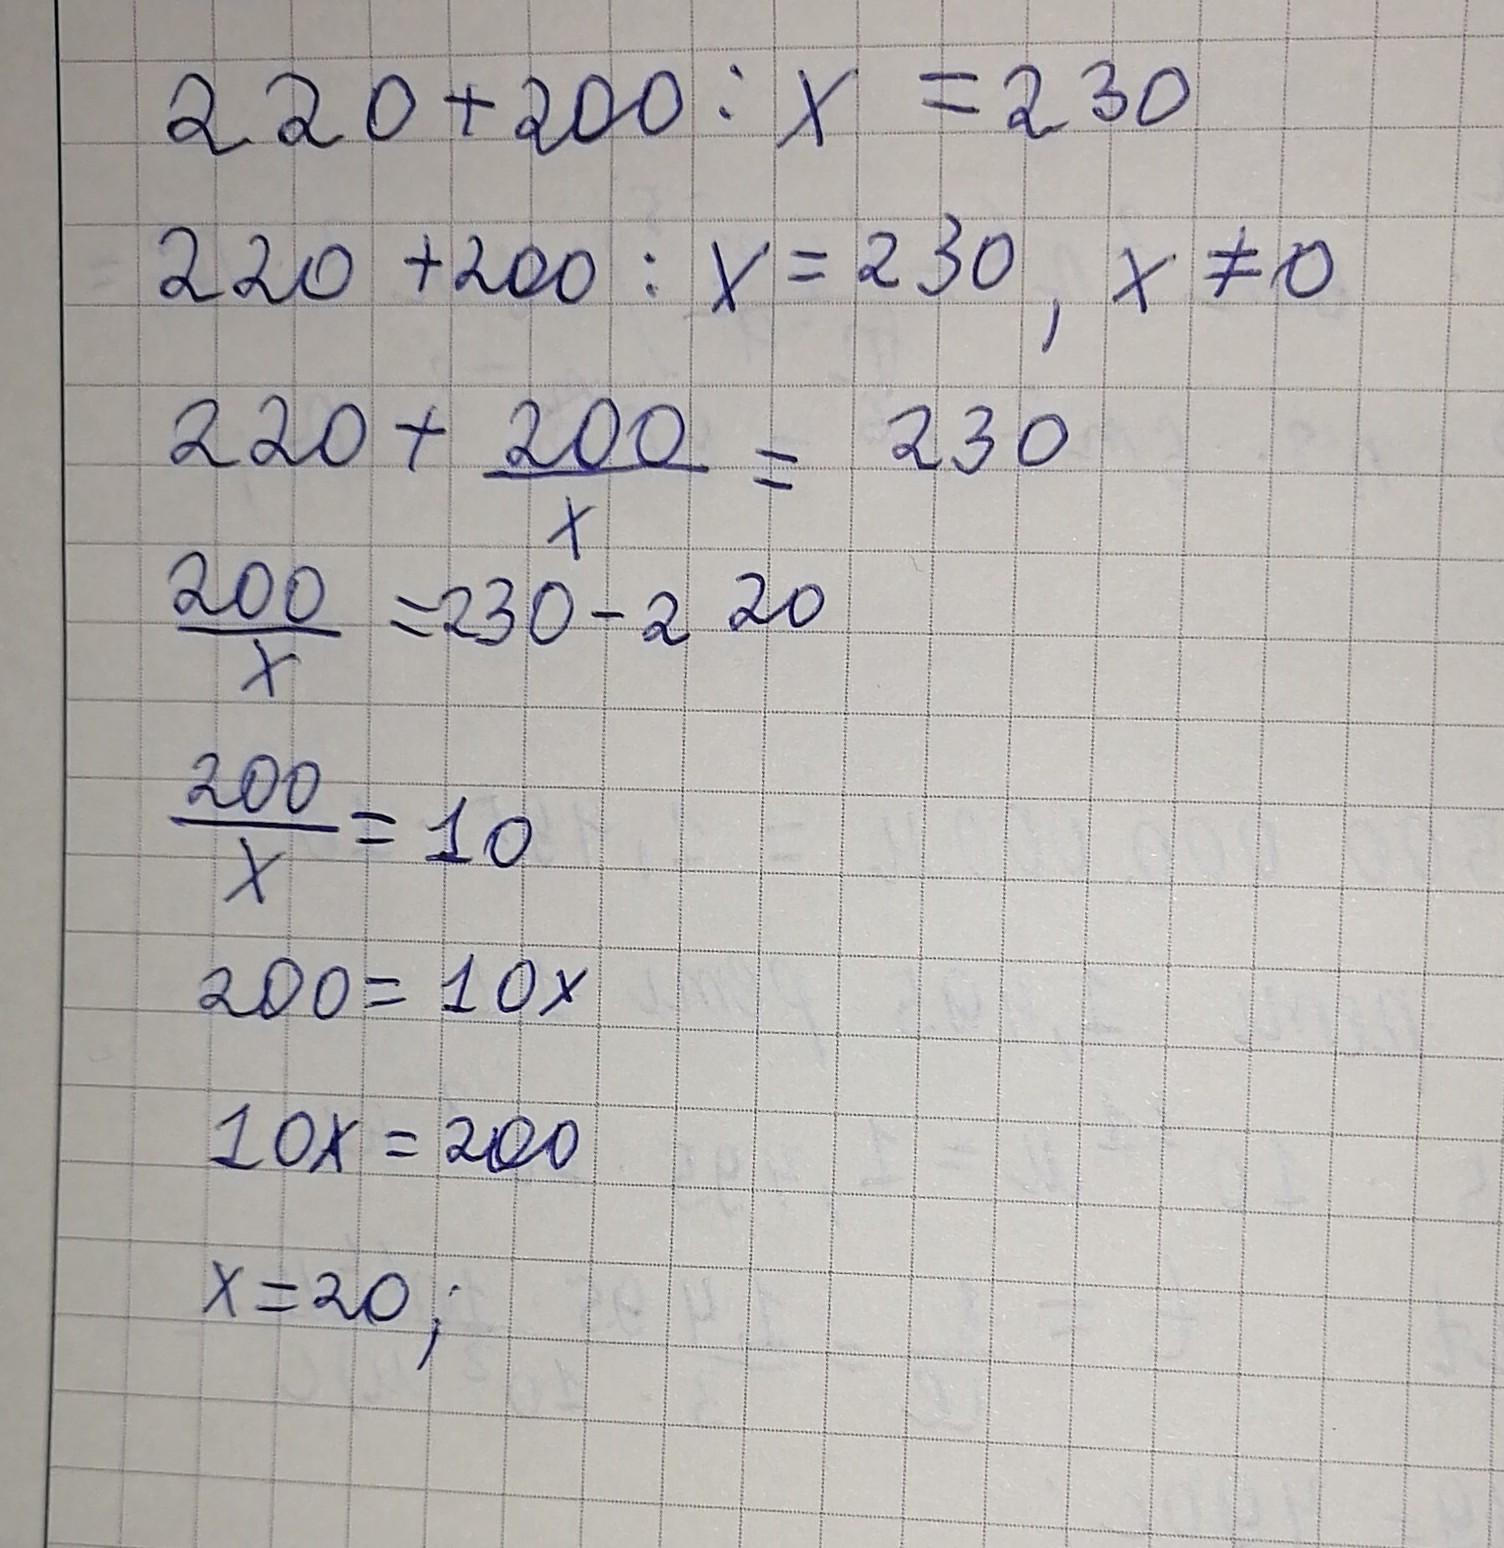 220+200:x=230
220+200:x=230, x≠0
220+200/x=230
200/x=230-220
200/x=10
200=10x
10x=200
x=20;